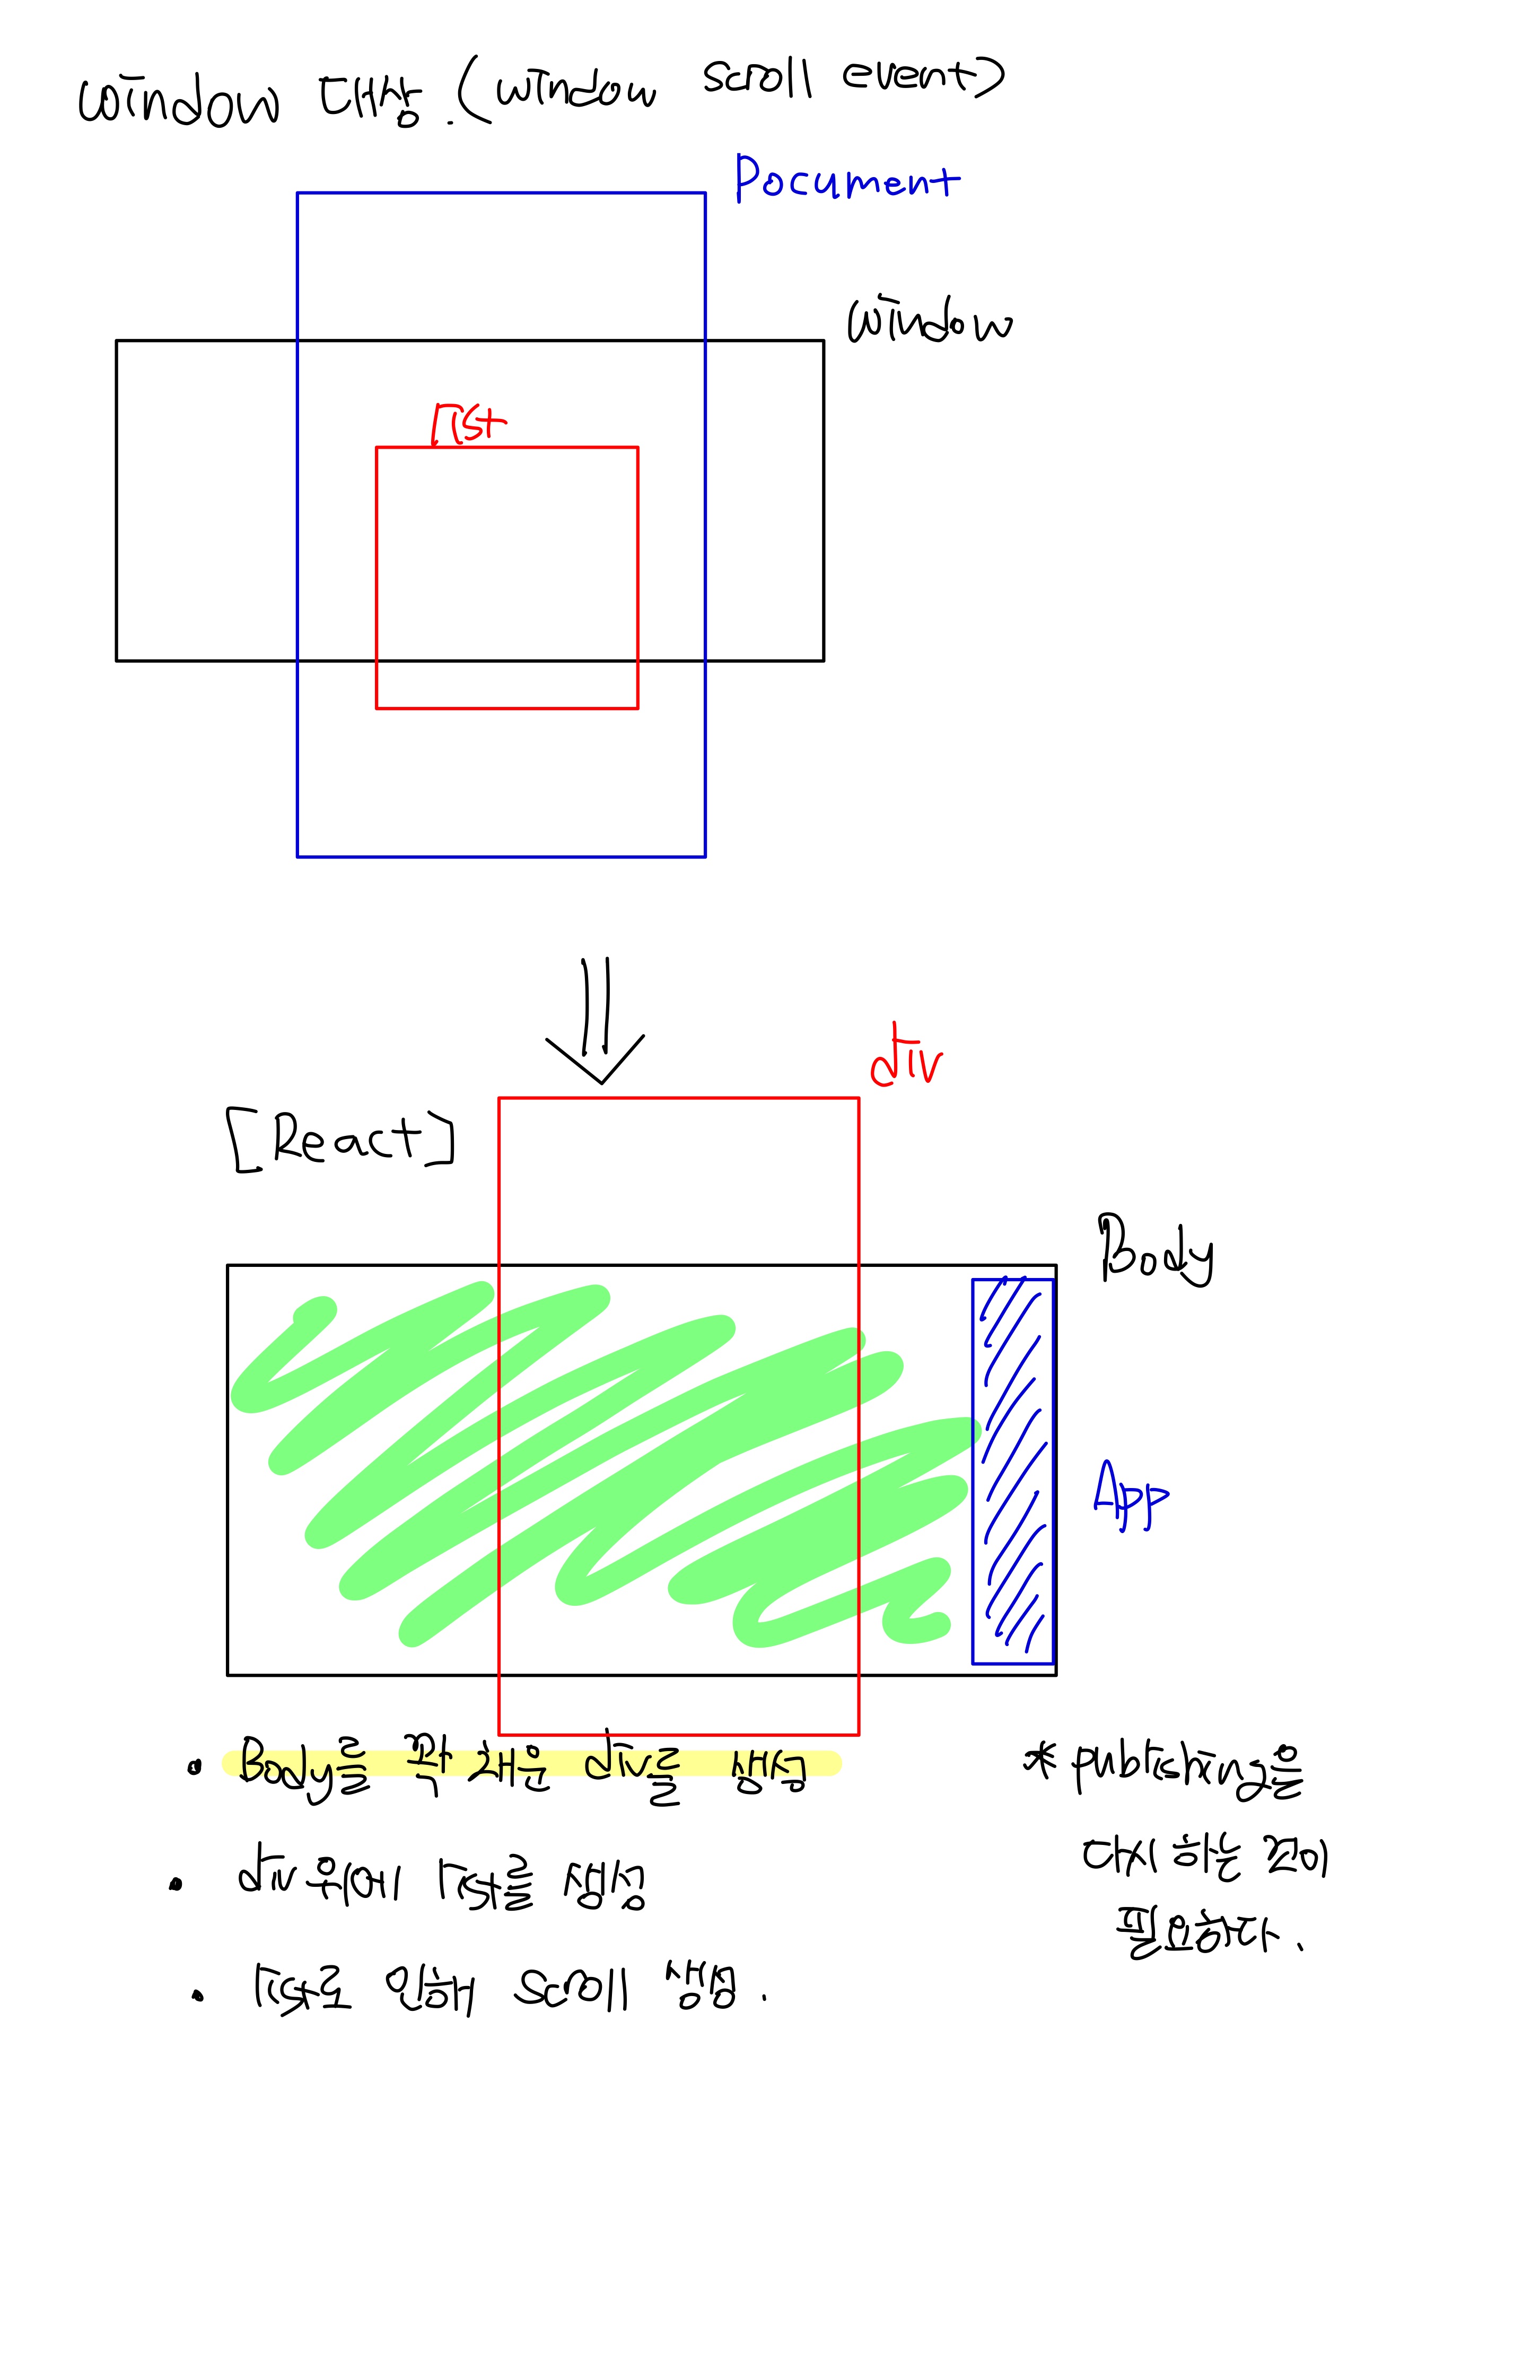 window 대상. (window scroll event)
Document
window
list
div
[React]
Body
App
• Body를 꽉 채운 div를 생성
• div 위에 list를 생성
• list로 인해 scroll 생성.
* publishing을
다시 하는 것이
필요하다.